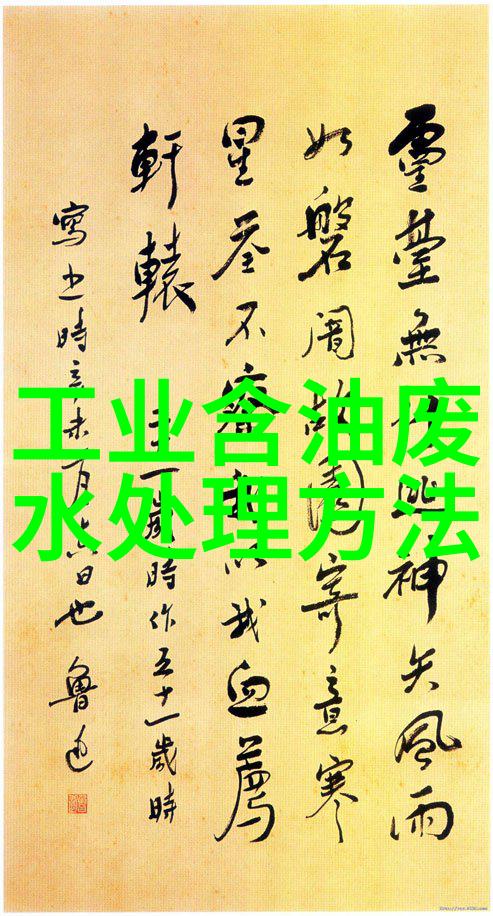 工业含油废
水处理方法
靈臺無逃神矢風雨
如磐闇故園寄意寒
星荃不察我以我血薦
軒轅
一歲時作五十一歲時
寫之時辛未二月十六日也 魯迅